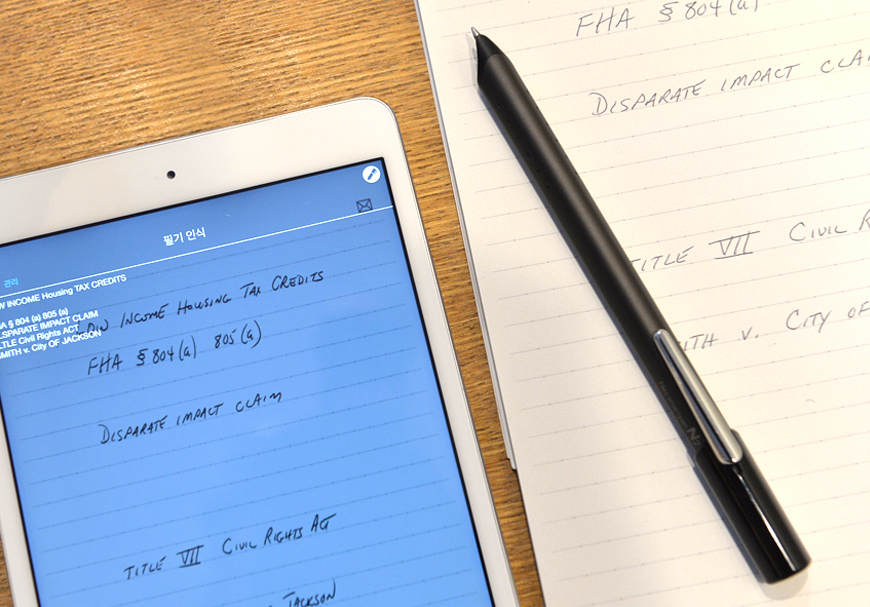 필기 인식
관리
W INCOME Housing TAX CREDITS
A § 804 (a) 805 (a)
SPARATE IMPACT CLAIM
TLE Civil Rights ACT
MITH v. City OF JACKSON
LOW INCOME HOUSING TAX CREDITS
FHA § 804 (a) 805 (a)
DISPARATE IMPACT CLAIM
TITLE VII CIVIL RIGHTS ACT
JACKSON
FHA § 804 (a)
DISPARATE IMPACT CLAI
TITLE VII CIVIL R
ITH V. CITY OF
N2